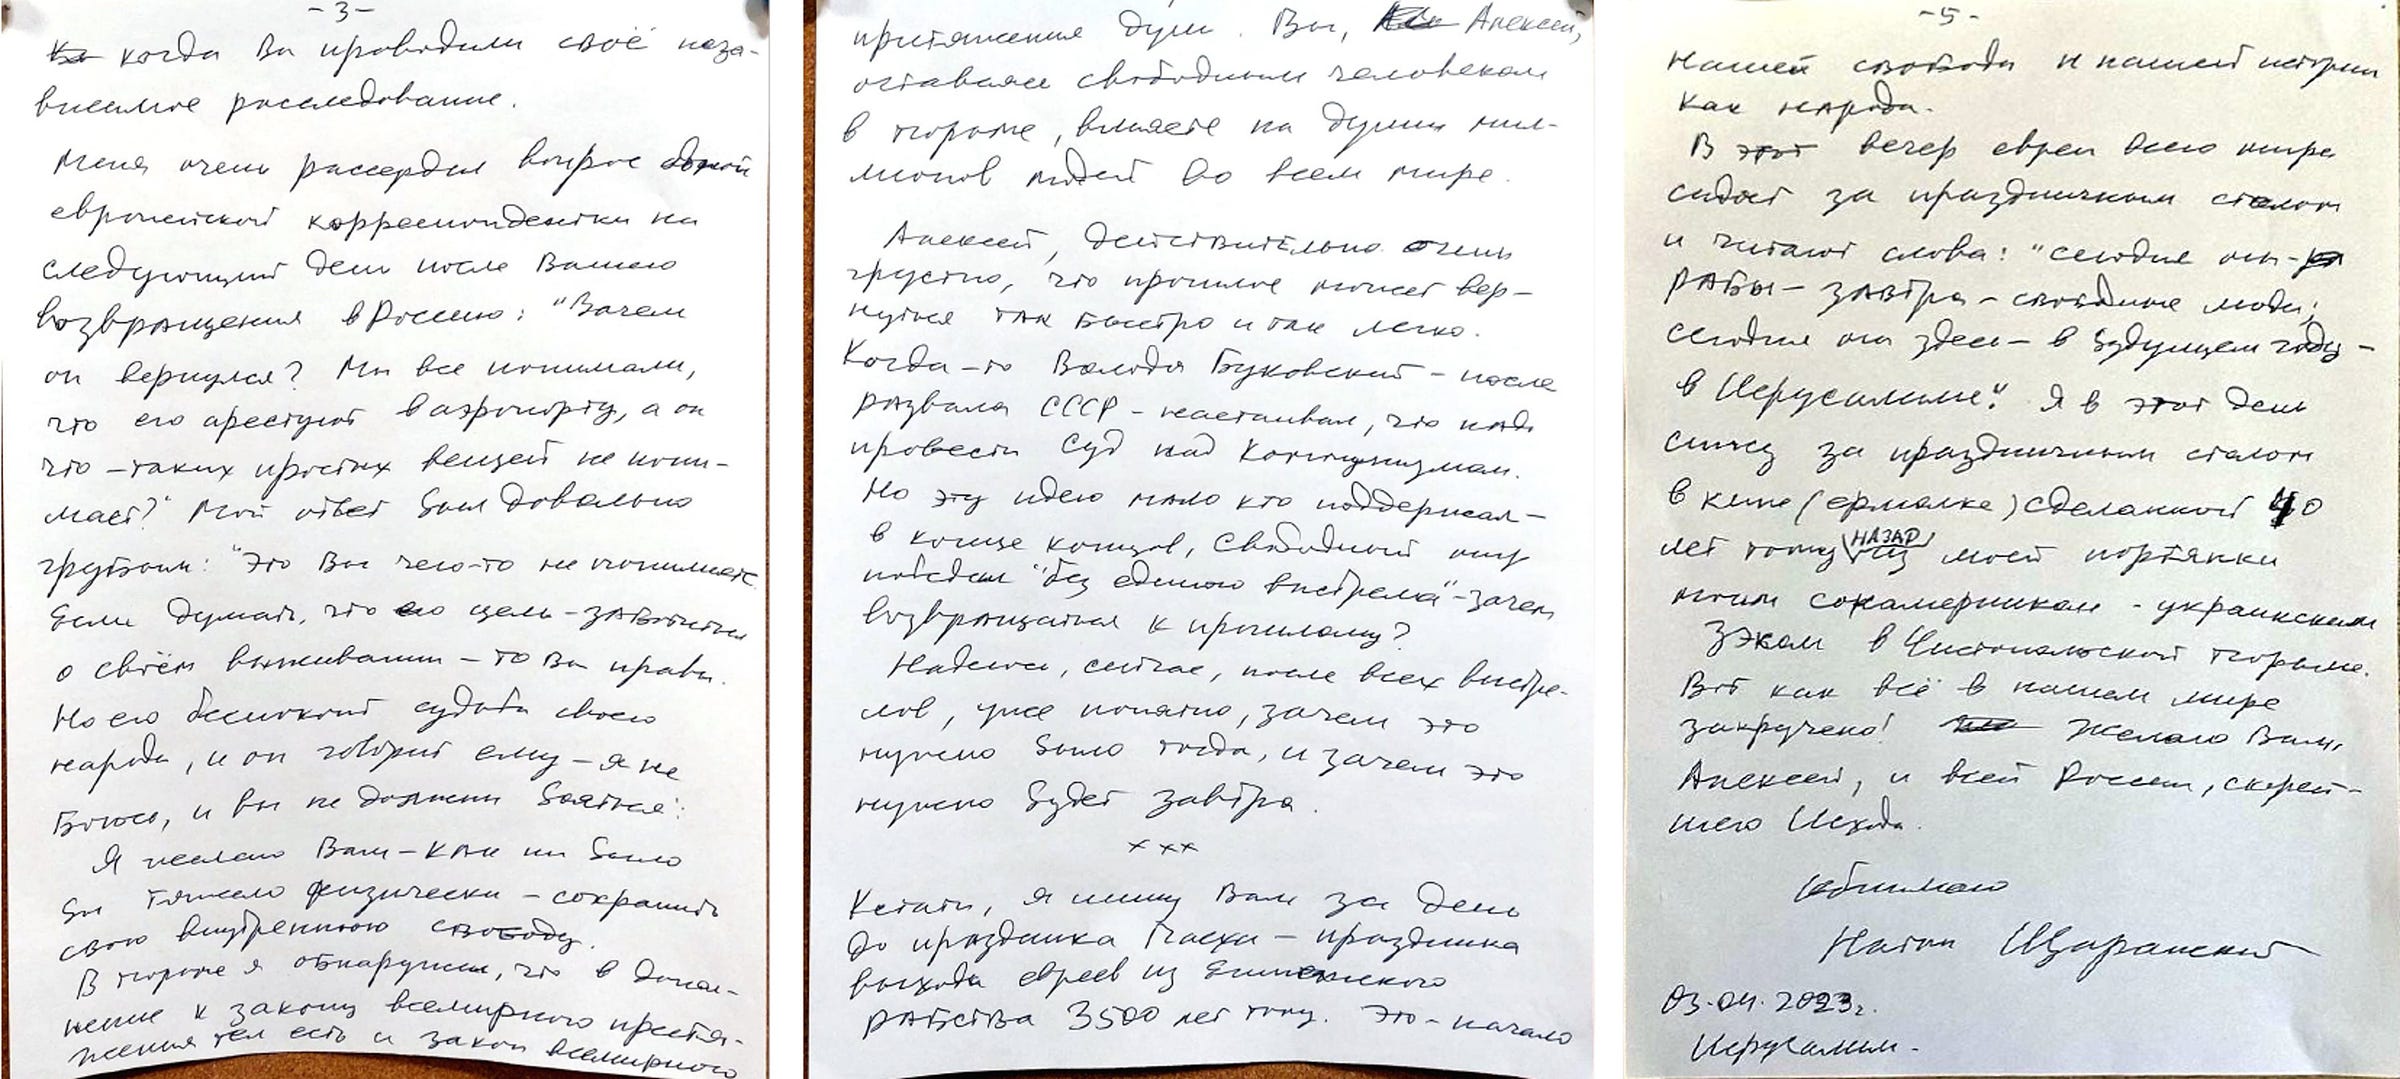 -3-
когда Вы проводили своё неза-
висимое расследование.
Меня очень рассердил вопрос одной
европейской корреспондентки на
следующий день после Вашего
возвращения в Россию: "Зачем
он вернулся? Мы все понимали,
что его арестуют в аэропорту, а он
что - таких простых вещей не пони-
мает?" Мой ответ был довольно
грубым: "Это Вы чего-то не понимаете.
Если думать, что его цель - заботиться
о своём выживании - то Вы правы.
Но его беспокоит судьба своего
народа, и он говорит ему - я не
боюсь, и вы не должны бояться".
Я желаю Вам - как ни было
бы тяжело физически - сохранить
свою внутреннюю свободу.
В тюрьме я обнаружил, что в допол-
нение к закону всемирного притя-
жения тел есть и закон всемирного
притяжения душ. Вы, Алексей,
оставаясь свободным человеком
в тюрьме, влияете на души мил-
лионов людей во всём мире.
Алексей, действительно очень
грустно, что прошлое может вер-
нуться так быстро и так легко.
Когда-то Володя Буковский - после
развала СССР - настаивал, что надо
провести Суд над Коммунизмом.
Но эту идею мало кто поддержал -
в конце концов, свободный мир
победил "без единого выстрела" - зачем
возвращаться к прошлому?
Надеюсь, сейчас, после всех выстре-
лов, уже понятно, зачем это
нужно было тогда, и зачем это
нужно будет завтра.
× × ×
Кстати, я пишу Вам за день
до праздника Пасха - праздника
выхода евреев из Египетского
рабства 3500 лет тому. Это - начало
-5-
нашей свободы и нашей истории
как народа.
В этот вечер евреи всего мира
сидят за праздничным столом
и читают слова: "сегодня мы -
рабы - завтра - свободные люди;
сегодня мы здесь - в будущем году -
в Иерусалиме". Я в этот день
сижу за праздничным столом
в кипе (ермолке) сделанной 40
лет тому назад из моей портянки
моим сокамерником - украинским
зэком в Чистопольской тюрьме.
Вот как всё в нашем мире
закручено! Желаю Вам,
Алексей, и всей России, скорей-
шего Исхода.
Обнимаю
Натан Щаранский
03.04.2023г.
Иерусалим.